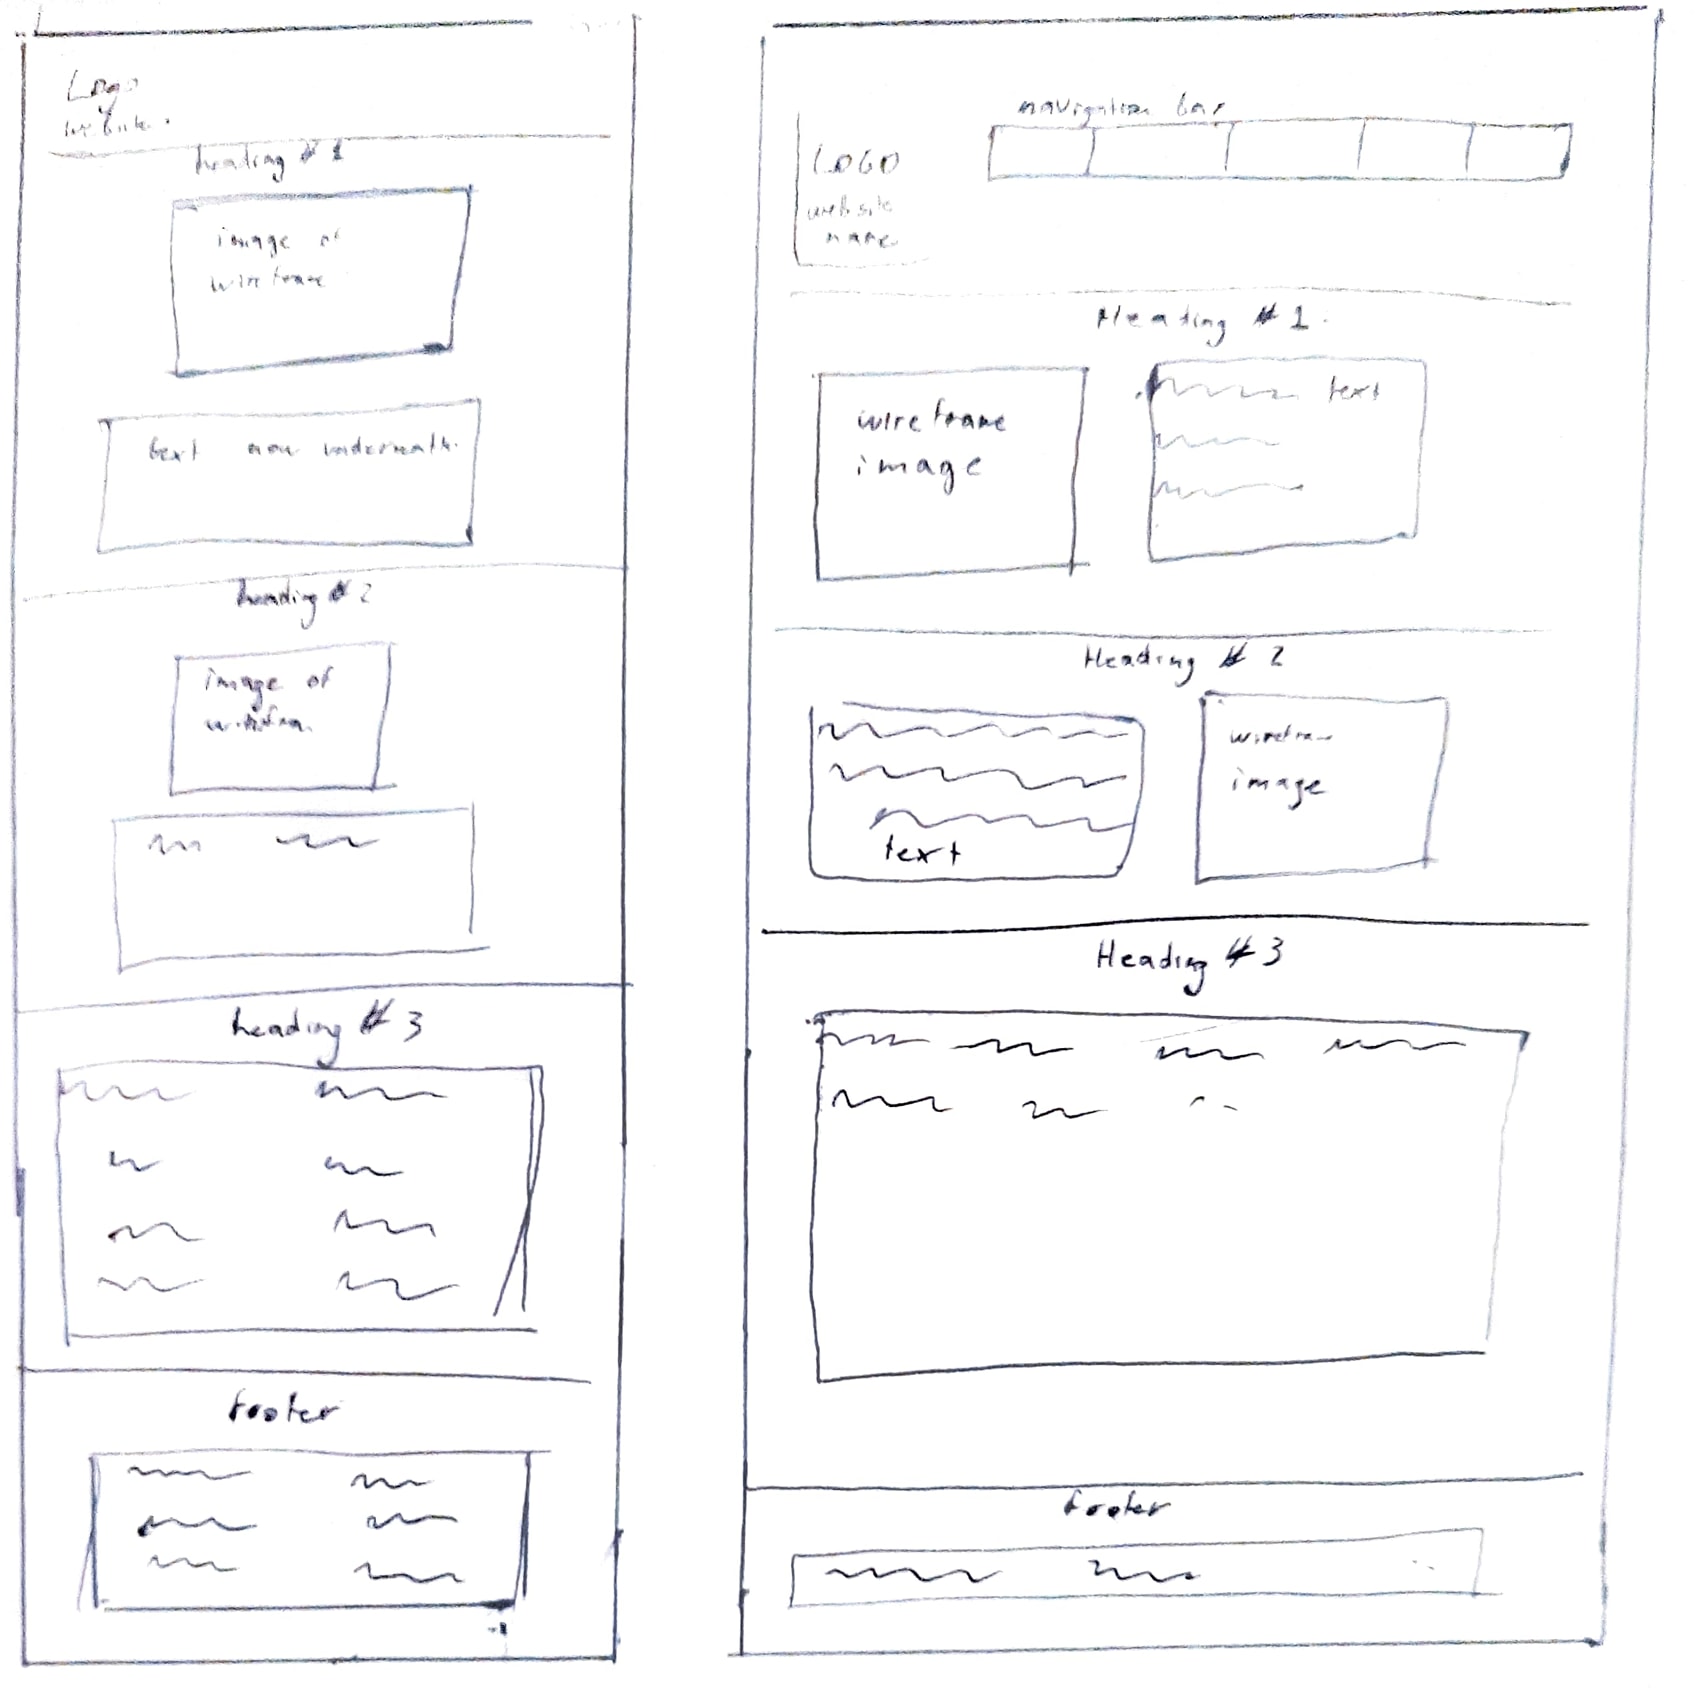 Logo
website
heading # 1
image of
wireframe
text now underneath.
heading # 2
image of
heading # 3
footer
navigation bar
LOGO
website
name
Heading # 1.
wireframe
image
text
Heading # 2
text
image
Heading # 3
footer